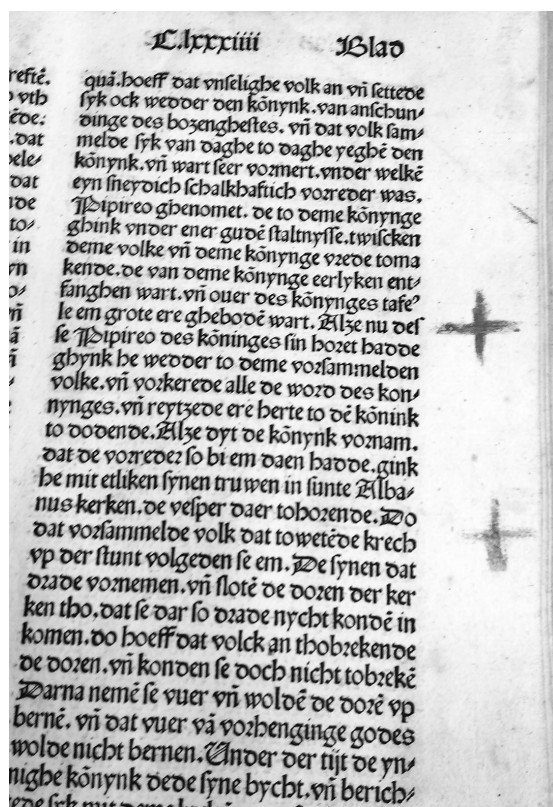 C.lxxxiiii Blad
quā.hoeff dat vnselighe volk an vn̄ settede
syk ock wedder den kōnynk.van anschun/
dinge des bozengheſtes. vn̄ dat volk ſam/
melde ſyk van daghe to daghe yeghē den
kōnynk.vn̄ wart ſeer vormert.vnder welkē
eyn ſneydich ſchalkhaftich vorreder was.
Pipireo ghenomet. de to deme kōnynge
ghink vnder ener gudē ſtaltnyſſe.twiſcken
deme volke vn̄ deme kōnynge vrede toma
kende.de van deme kōnynge eerlyken ent/
fanghen wart.vn̄ ouer des kōnynges tafeꝰ
le em grote ere ghebodē wart. Alze nu deſ
ſe Pipireo des kōninges ſin horet hadde
ghynk he wedder to deme vorſammelden
volke.vn̄ vorkerede alle de word des kon/
nynges.vn̄ reytzede ere herte to dē kōnink
to dodende.Alze dyt de kōnynk vornam.
dat de vorreder ſo bi em daen hadde.gink
he mit etliken ſynen truwen in ſunte Alba/
nus kerken.de veſper daer tohorende.Do
dat vorſammelde volk dat towetēde krech
vp der ſtunt volgeden ſe em.De ſynen dat
drade vornemen.vn̄ ſlotē de doren der ker
ken tho.dat ſe dar ſo drade nycht kondē in
komen.do hoeff dat volck an thobrekende
de doren.vn̄ konden ſe doch nicht tobrekē
Darna nemē ſe vuer vn̄ woldē de dorē vp
bernē. vn̄ dat vuer vā vorhenginge godes
wolde nicht bernen.Under der tijt de yn/
nighe kōnynk dede ſyne bycht.vn̄ berich/